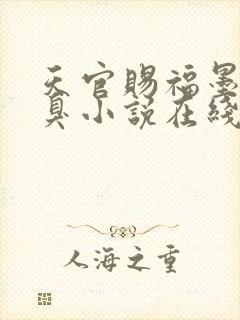 天官赐福墨
臭小说在线
人海之重